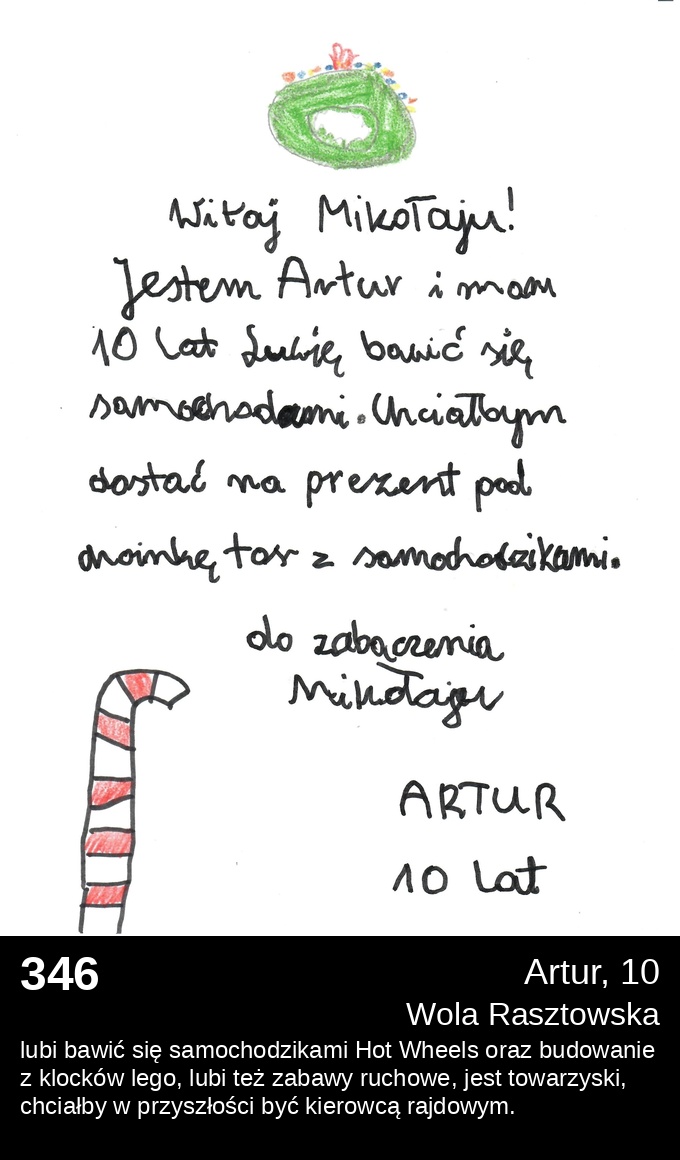 Witaj Mikołaju!
Jestem Artur i mam
10 lat Lubię bawić się
samochodami. Chciałbym
dostać na prezent pod
choinkę tor z samochodzikami.
do zabączenia
Mikołaju
ARTUR
10 lat
346
Artur, 10
Wola Rasztowska
lubi bawić się samochodzikami Hot Wheels oraz budowanie
z klocków lego, lubi też zabawy ruchowe, jest towarzyski,
chciałby w przyszłości być kierowcą rajdowym.